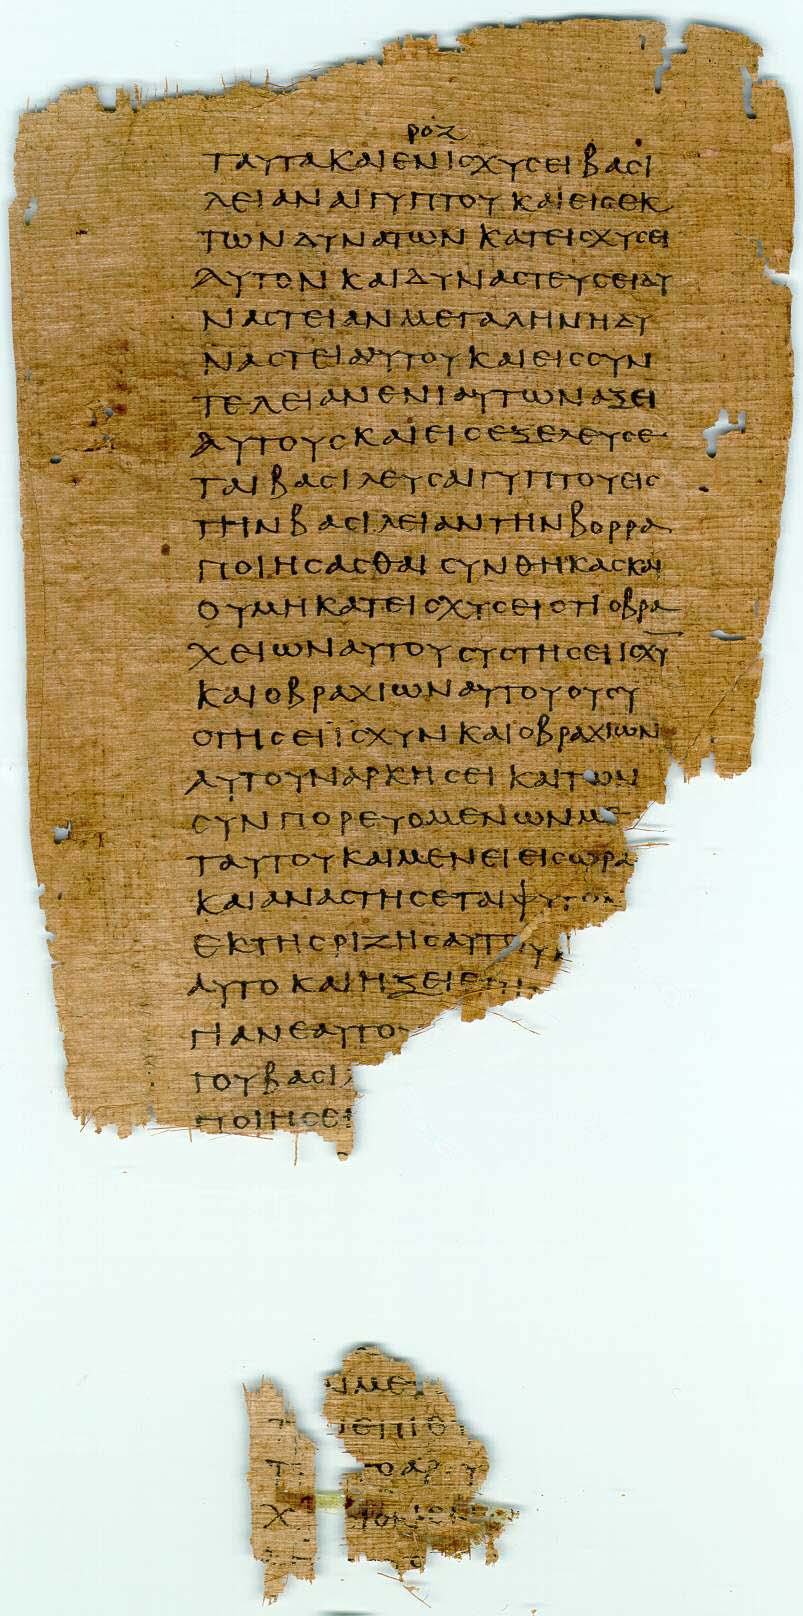 ροζ
ταυτακαιενισχυσειβασι
λειαναιγυπτουκαιεισεκ
τωνδυνατωνκατεισχυσει
αυτονκαιδυναστευσειδυ
ναστειανμεγαληνηδυ
ναστειααυτουκαιεισσυν
τελειανενιαυτωναξει
αυτουσκαιεισεξελευσε
ταιβασιλευσαιγυπτουεισ
τηνβασιλειαντηνβορρα
ποιησασθαισυνθηκασκαι
ουμηκατεισχυσειοτιοβρα
χειωναυτουουστησειισχυ
καιοβραχιωναυτουουσυ
στησειϊσχυνκαιοβραχιων
αυτουναρκησεικαιτων
συνπορευομενωνμε
ταυτουκαιμενειεισωρα
καιαναστησεταιφυτον
εκτησριζησαυτου
αυτοκαιηξειεπι
πιανεαυτου
τουβασιλ
ποιησει
μετ
επιθ